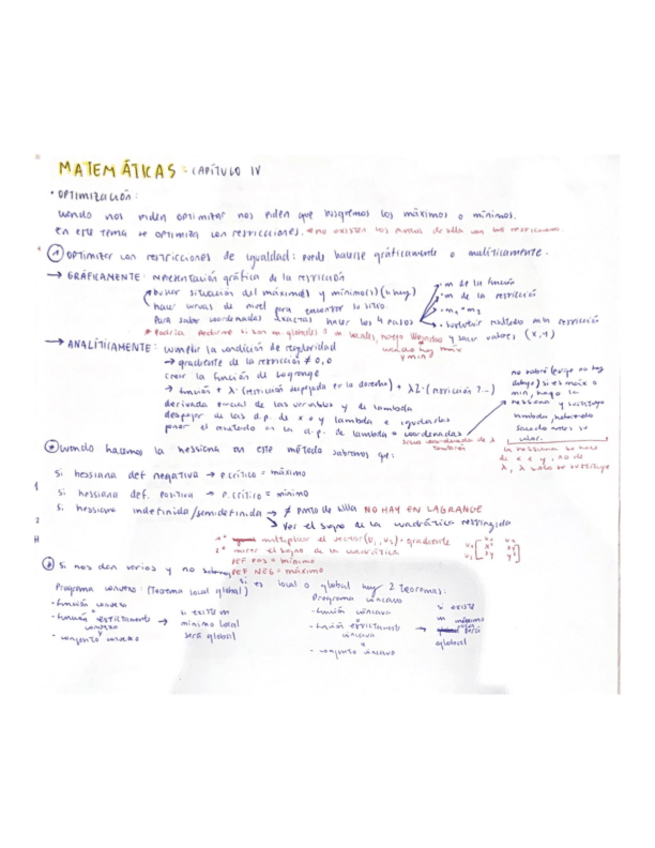 MATEMÁTICAS: CAPÍTULO IV
• OPTIMIZACIÓN:
cuando nos piden optimizar nos piden que busquemos los máximos o mínimos.
en este tema se optimiza con restricciones. *no existen los puntos de silla con
① Optimizar con restricciones de igualdad: puede hacerse gráficamente o analíticamente.
→ GRÁFICAMENTE: representación gráfica de la restricción
buscar situación del máximo(s) y mínimo(s) (si hay)
hacer curvas de nivel para encontrar su sitio.
Para saber coordenadas exactas hacer los 4 pasos
• m de la función
• m de la restricción
• m₁ = m₂
• sustituir resultado en la restricción y sacar valores (x, y)
* Podría pedirme si son m globales = m locales, luego Weierstrass
cuando hay máx y mín
→ ANALÍTICAMENTE: cumplir la condición de regularidad
→ gradiente de la restricción ≠ 0,0
crear la función de Lagrange
→ función + λ · (restricción despejada por la derecha) + λ2 · (restricción 2...)
derivada parcial de las variables y de lambda
despejar de las d.p. de x e y lambda e igualarlas
poner el resultado en la d.p. de lambda = coordenadas
saco coordenada de λ también
no sabré (porque no hay dibujo) si es máx o
min, hago la hessiana y sustituyo
lambda, habiendo sacado antes su valor.
la hessiana se hace
de x e y, no de
λ, λ solo se sustituye
cuando hacemos la hessiana en este método sabremos que:
si hessiana def negativa → p crítico = máximo
si hessiana def. positiva → p. crítico = mínimo
si hessiana indefinida/semidefinida → ∄ punto de silla NO HAY EN LAGRANGE
↘ Ver el signo de la cuadrática restringida
1º multiplicar el vector (v₁, v₂) · gradiente
2º mirar el signo de la cuadrática
DEF POS = mínimo
DEF NEG = máximo
Si nos den varios y no sabemos si es local o global hay 2 teoremas:
Programa convexo: (Teorema local global)
- función convexa
- función estrictamente convexa
- conjunto convexo
→ si existe m
mínimo local
será global
Programa cóncavo
- función cóncava
- función estrictamente cóncava
- conjunto cóncavo
→ si existe
m máximo
será
global